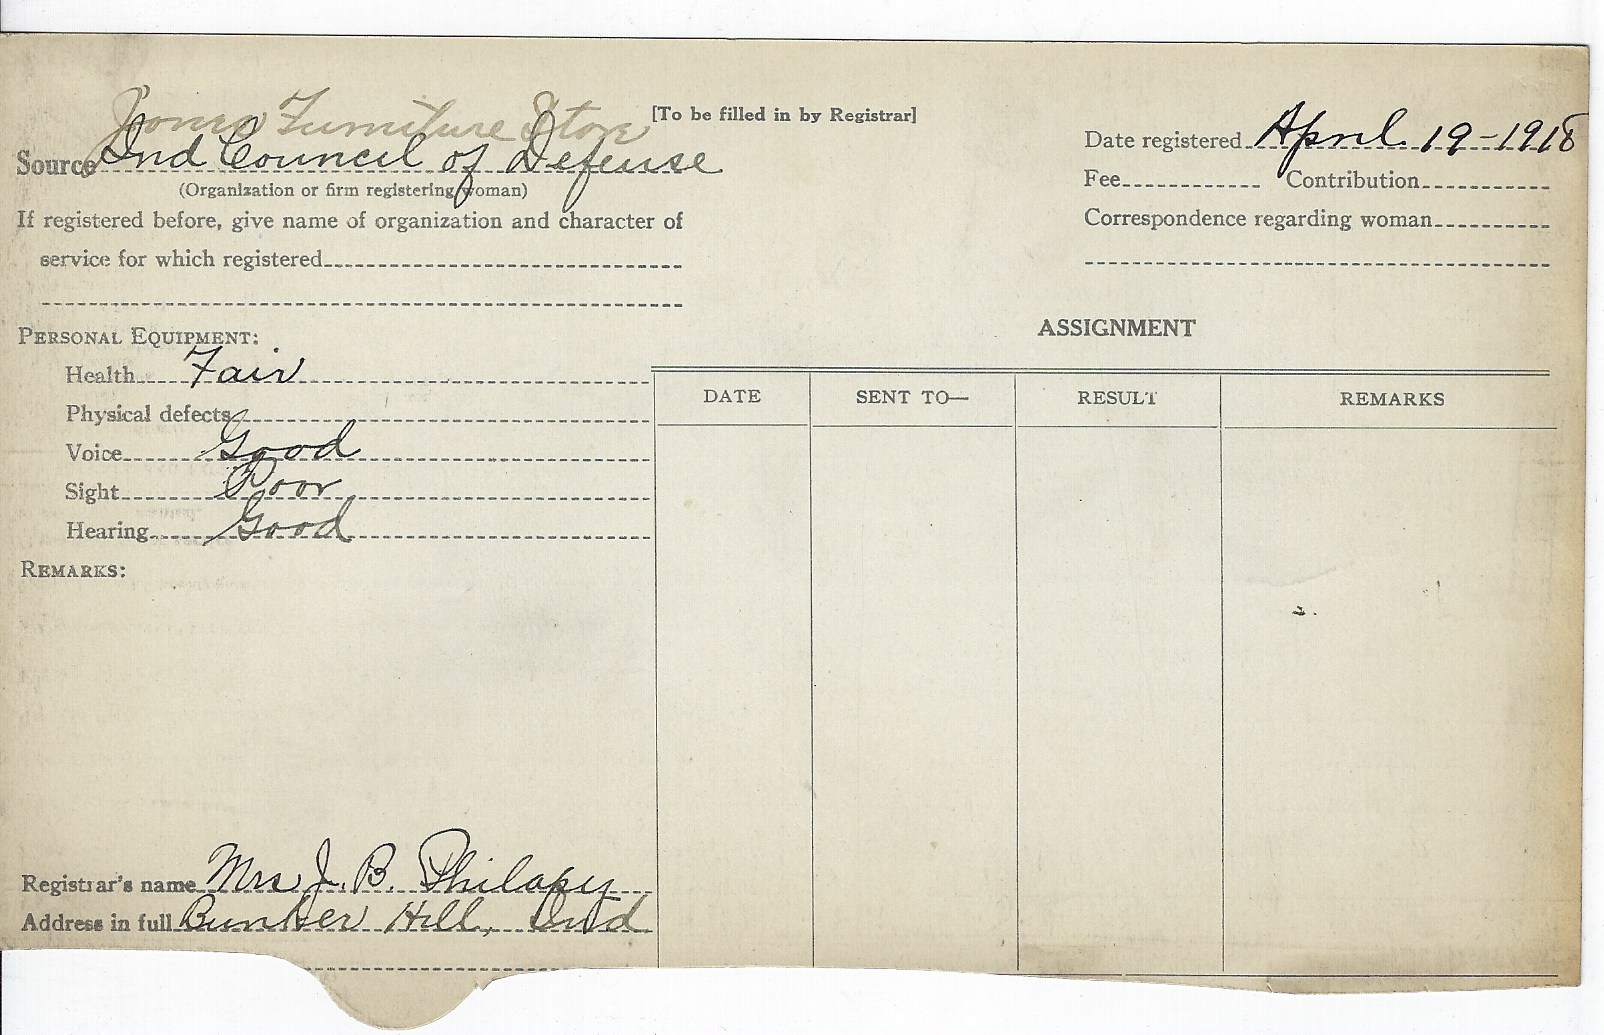 [To be filled in by Registrar]
Furniture Store
Source Ind Council of Defense
(Organization or firm registering woman)
If registered before, give name of organization and character of
service for which registered
Date registered April 19-1918
Fee Contribution
Correspondence regarding woman
PERSONAL EQUIPMENT:
Health Fair
Physical defects
Voice Good
Sight Poor
Hearing Good
REMARKS:
ASSIGNMENT
DATE SENT TO— RESULT REMARKS
Registrar's name Mrs J. B. Philapy
Address in full Bunker Hill, Ind